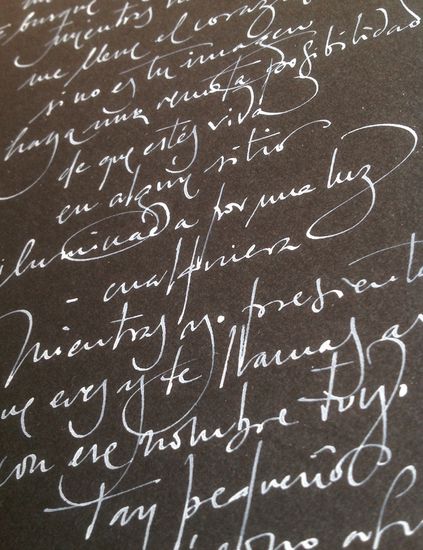 busque
mientras
me llene el corazón
si no es tu imagen
haya una remota posibilidad
de que estés viva
en algún sitio
iluminada por una luz
- cualquiera
Mientras yo presienta
que eres y te llamas as
con ese nombre tuyo
tan pequeño